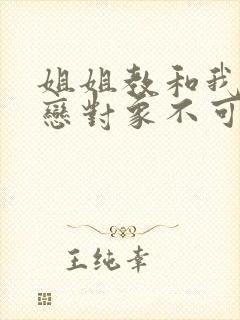 姐姐教和我
戀對象不可
王純幸